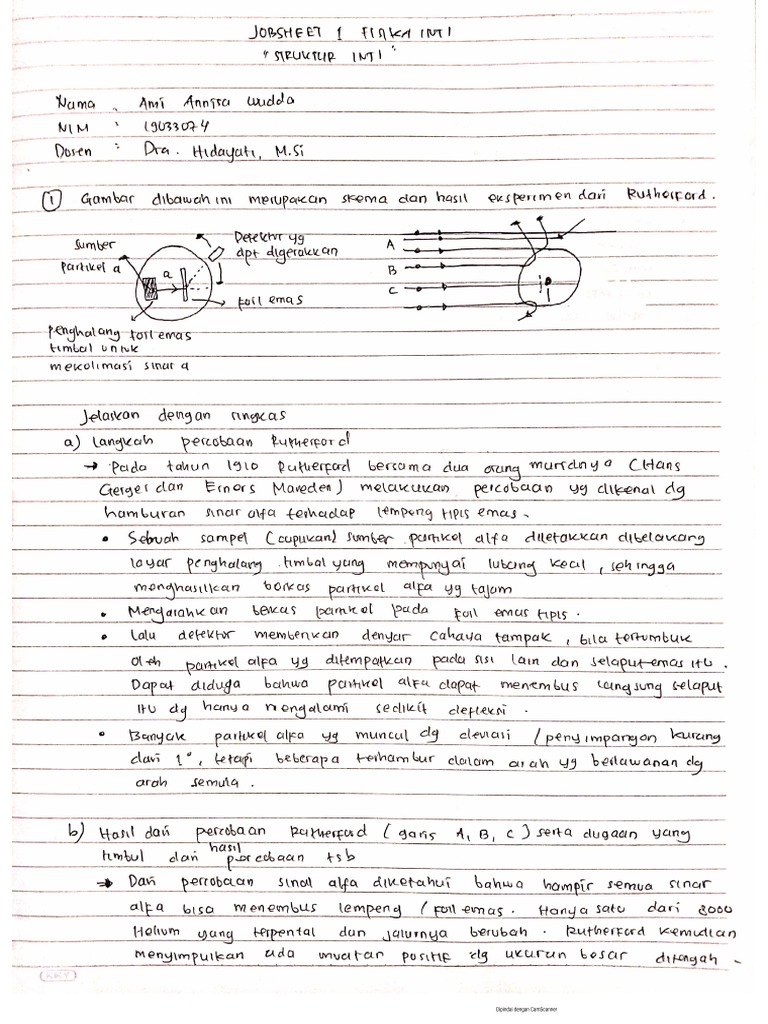 JOBSHEET 1 FISIKA INTI
"STRUKTUR INTI"
Nama : Ami Annisa Wudda
NIM : 19033074
Dosen : Dra. Hidayati, M.Si
1 Gambar dibawah ini merupakan skema dan hasil eksperimen dari Rutherford.
sumber
partikel a
a
Detektor yg
dpt digerakkan
foil emas
penghalang foil emas
timbal untuk
mekolimasi sinar a
A
B
C
Jelaskan dengan ringkas
a) Langkah percobaan Rutherford
→ Pada tahun 1910 Rutherford bersama dua orang muridnya (Hans
Gerger dan Ernors Mareden) melakukan percobaan yg dikenal dg
hamburan sinar alfa terhadap lempeng tipis emas.
• Sebuah sampel (cupukan) sumber partikel alfa diletakkan dibelakang
layar penghalang timbal yang mempunyai lubang kecil, sehingga
menghasilkan berkas partikel alfa yg tajam
• Mengarahkan berkas partikel pada foil emas tipis.
• Lalu detektor memberikan denyar cahaya tampak, bila tertumbuk
oleh partikel alfa yg ditempatkan pada sisi lain dan selaput emas itu.
Dapat diduga bahwa partikel alfa dapat menembus langsung selaput
itu dg hanya mengalami sedikit defleksi.
• Banyak partikel alfa yg muncul dg deviasi / penyimpangan kurang
dari 1°, tetapi beberapa terhambur dalam arah yg berlawanan dg
arah semula.
b) Hasil dari percobaan Rutherford (garis A, B, C) serta dugaan yang
timbul dari hasil percobaan tsb
→ Dari percobaan sinar alfa diketahui bahwa hampir semua sinar
alfa bisa menembus lempeng / foil emas. Hanya satu dari 8000
Helium yang terpental dan jalurnya berubah. Rutherford kemudian
menyimpulkan ada muatan positif dg ukuran besar ditengah -
KKY
Dipindai dengan CamScanner